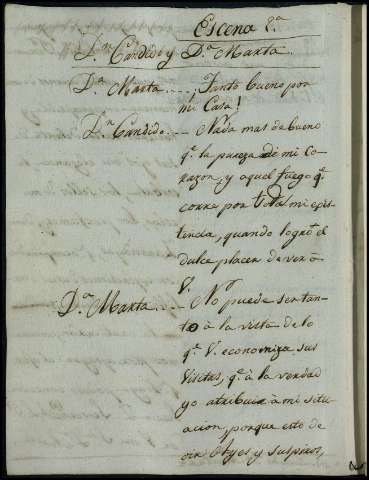 Escena 8.ª
D.n Candido y D.ª Marta.
D.ª Marta.... Tanto bueno por
mi Casa!
D.n Candido... Nada mas de bueno
q.e la pureza de mi co-
razon, y aquel fuego q.e
corre por toda mi exis-
tencia, quando logro el
dulce placer de ver á
V.
D.ª Marta.... No puede ser tan-
to à la vista de lo
q.e V. economiza sus
visitas, q.e à la verdad
yo atribuia à mi situ-
acion, porque esto de
oir Ayes y suspiros,